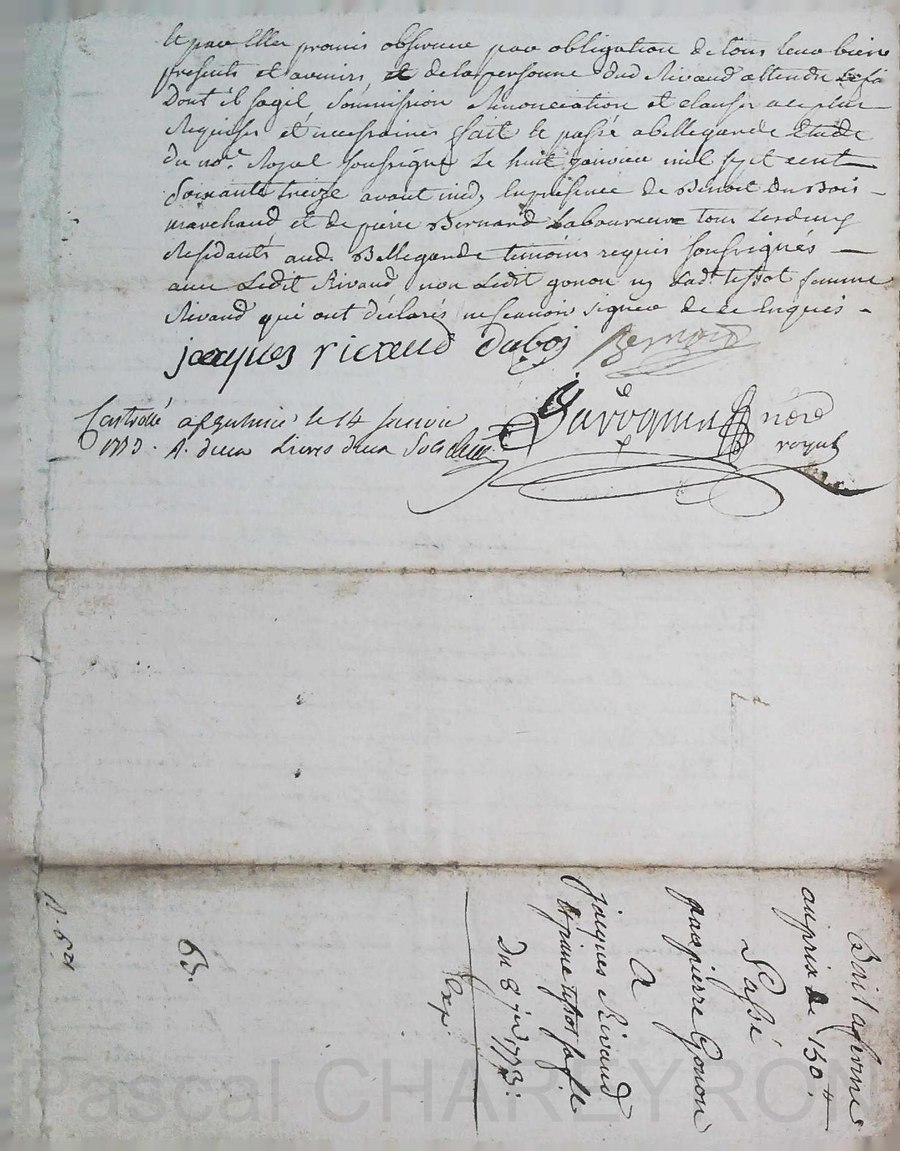 et par Elles promis observer par obligation de tous leurs biens
presents et avenirs, et de la personne dud Rivaud attendu
Dont il sagit Soummission Renonciation et clauses
Requises et necessaires fait et passé a Bellegarde Etude
du no.re Royal soussigné Le huit janvier mil sept cent
Soixante treize avant midy En presence de Benoit Du Bois
marchand et de pierre Bernard Laboureur tous Les deux
Residants aud. Bellegarde temoins requis soussignés
avec Ledit Rivaud non Ledit gonon ny Lad.te tissot femme
Rivaud qui ont déclarés ne scavoir signer de ce Enquis
jacques rivaud dubois Bernard
Controllé a le 14 Janvier
1773. R. deux Livres deux Sols
nore
royal
Bail a ferme
au prix de 150.tt
Passé
par pierre Gonon
A
jacques Rivaud
et jeane tissot sa fe
Du 8 jer 1773:
Exp.
63.
Pascal CHAREYRON